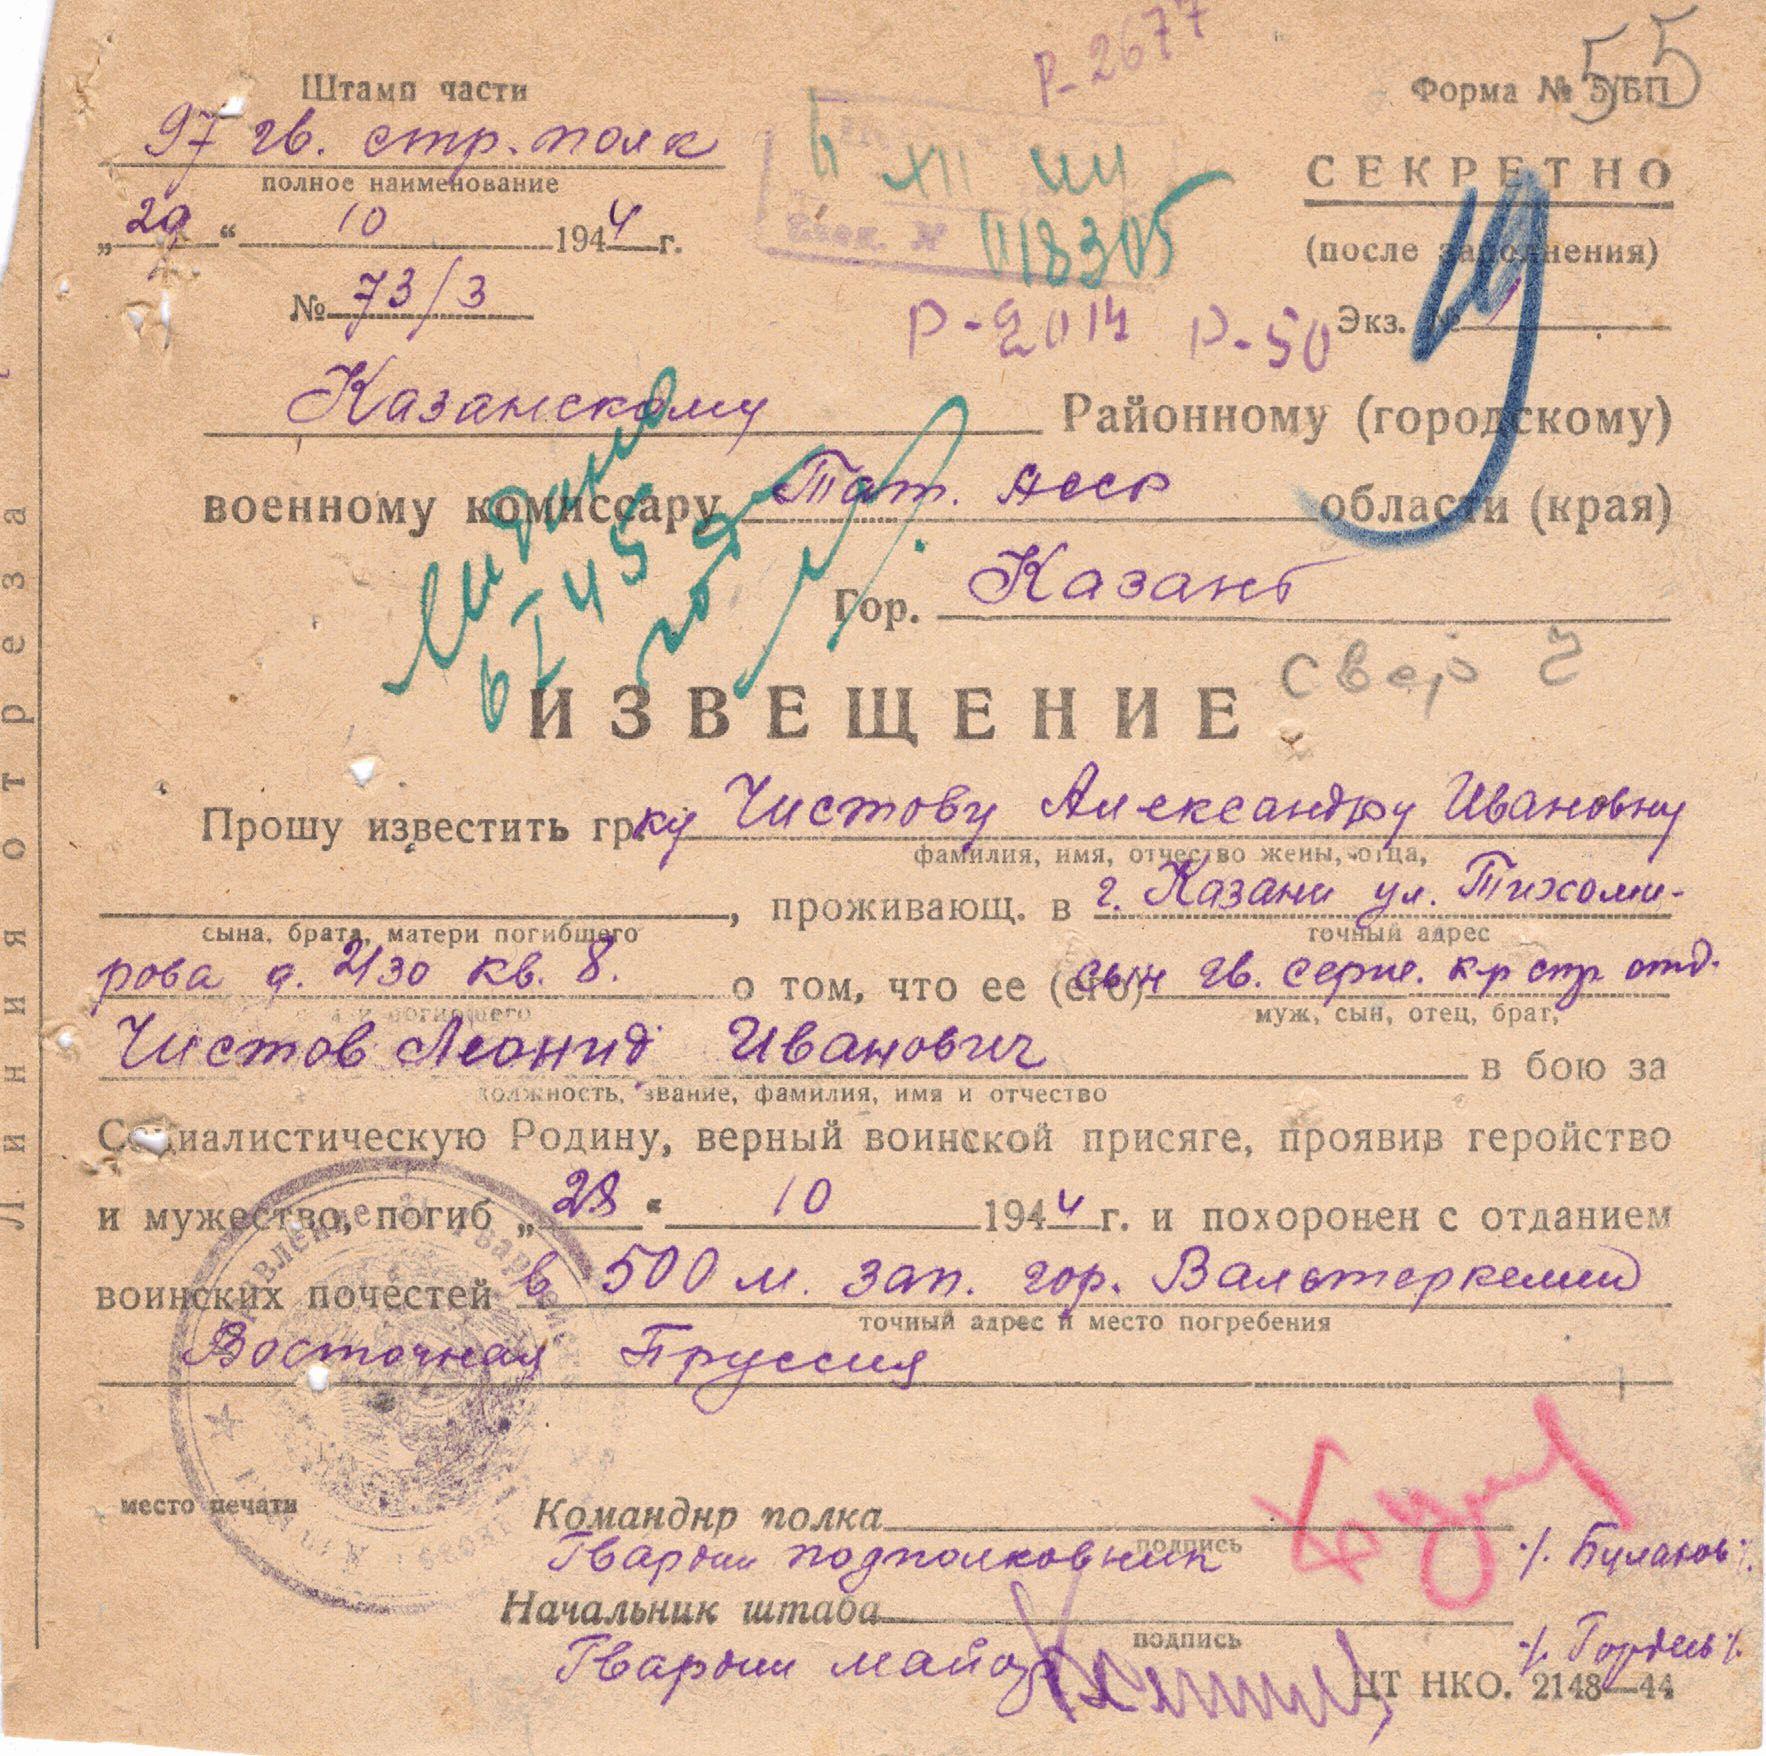 Р-2677
55
Штамп части
Форма № 5/БП
97 гв. стр. полк
полное наименование
СЕКРЕТНО
6 XII 44
„29“ 10 1944 г.
(после заполнения)
018305
№ 73/3
Экз. №
Р-2014 Р-50
Казанскому Районному (городскому)
военному комиссару Тат. АССР области (края)
Гор. Казань
6 I 45
свер
ИЗВЕЩЕНИЕ
Прошу известить гр-ку Чистову Александру Ивановну
фамилия, имя, отчество жены, отца,
, проживающ. в г. Казани ул. Тихоми-
сына, брата, матери погибшего
точный адрес
рова д. 2/30 кв. 8. о том, что ее (его) сын гв. серж. к-р стр. отд.
муж, сын, отец, брат,
Чистов Леонид Иванович в бою за
должность, звание, фамилия, имя и отчество
Социалистическую Родину, верный воинской присяге, проявив геройство
и мужество, погиб „28“ 10 1944 г. и похоронен с отданием
воинских почестей в 500 м. зап. гор. Вальтеркемин
точный адрес и место погребения
Восточная Пруссия
место печати
Командир полка
подпись
Гвардии подполковник /. Булахов /.
Начальник штаба
подпись
Гвардии майор /. Гордеев /.
ЦТ НКО. 2148—44
Линия отреза